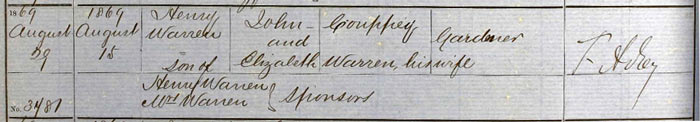 1869 1869 Henry John Couppey Gardener
August August Warren and
29 15 son of Elizabeth Warren, his wife
Henry Warren
No. 3481 Mrs Warren } Sponsors